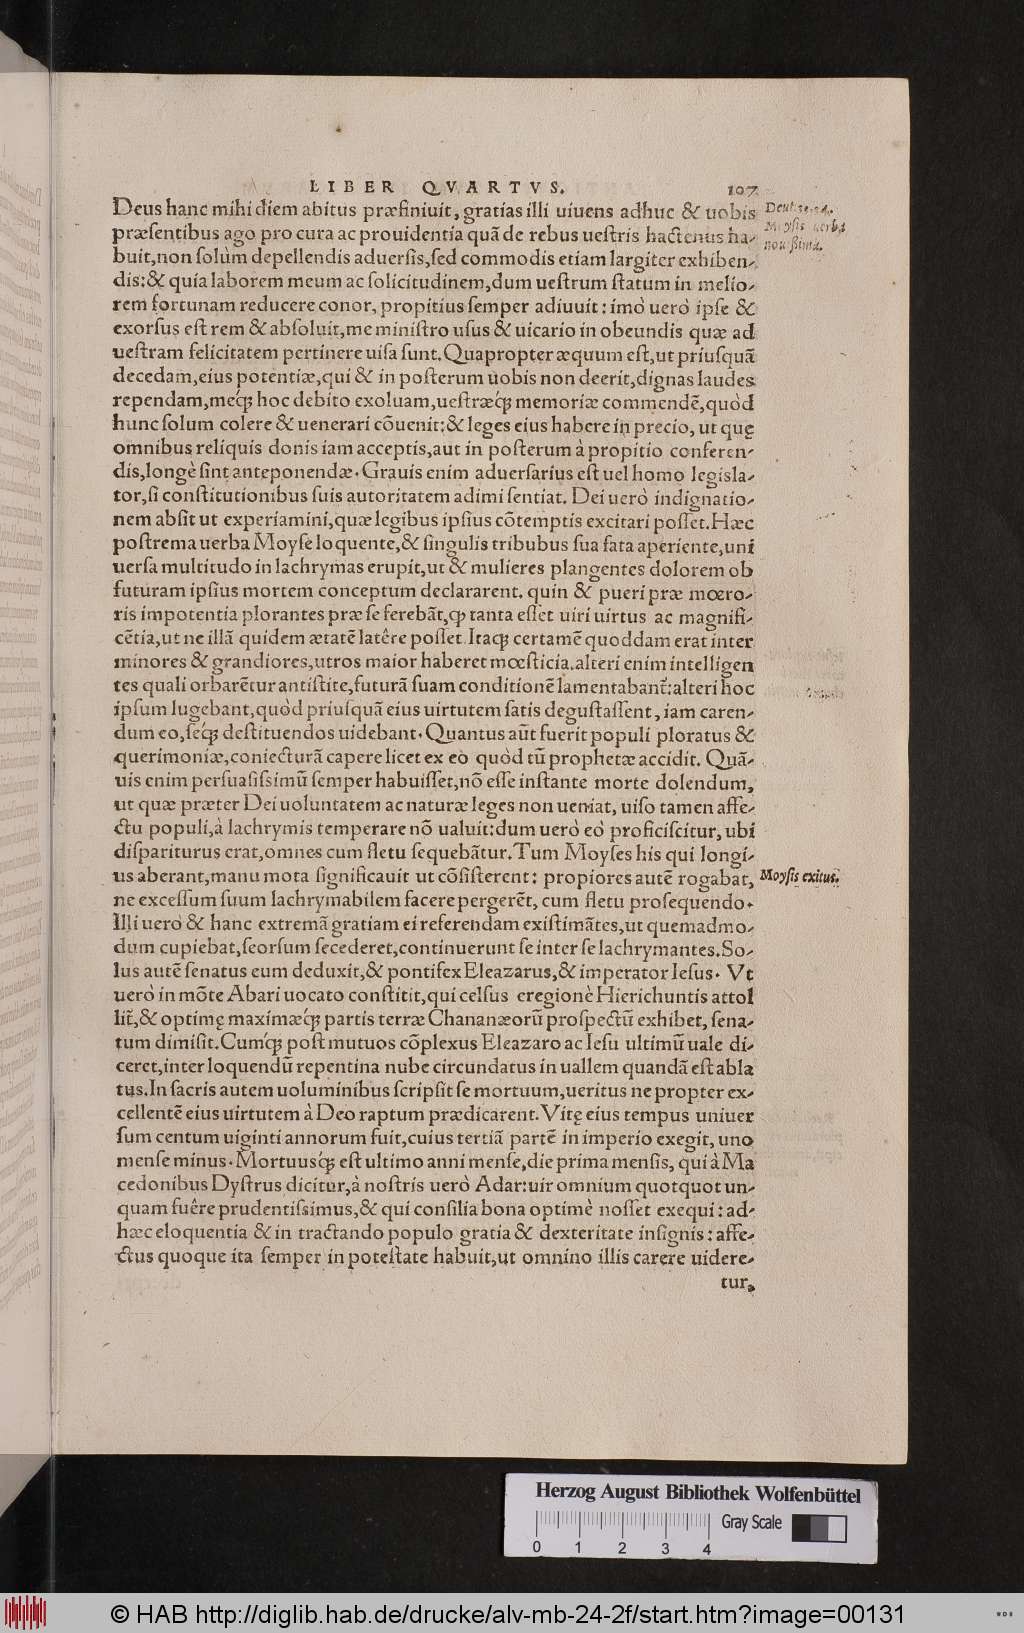 LIBER QVARTVS. 107
Deus hanc mihi diem abitus præfiniuit, gratias illi uiuens adhuc & uobis
præsentibus ago pro cura ac prouidentia quã de rebus uestris hactenus ha-
buit, non solùm depellendis aduersis, sed commodis etiam largiter exhiben-
dis: & quia laborem meum ac solicitudinem, dum uestrum statum in melio-
rem fortunam reducere conor, propitius semper adiuuit: imò uerò ipse &
exorsus est rem & absoluit, me ministro usus & uicario in obeundis quæ ad
uestram felicitatem pertinere uisa sunt. Quapropter æquum est, ut priusquã
decedam, eius potentiæ, qui & in posterum uobis non deerit, dignas laudes
rependam, meq́; hoc debito exoluam, uestræq́; memoriæ commendẽ, quòd
hunc solum colere & uenerari cõuenit: & leges eius habere in precio, ut quę
omnibus reliquis donis iam acceptis, aut in posterum à propitio conferen-
dis, longè sint anteponendæ. Grauis enim aduersarius est uel homo legisla-
tor, si constitutionibus suis autoritatem adimi sentiat. Dei uerò indignatio-
nem absit ut experiamini, quæ legibus ipsius cõtemptis excitari posset. Hæc
postrema uerba Moyse loquente, & singulis tribubus sua fata aperiente, uni
uersa multitudo in lachrymas erupit, ut & mulieres plangentes dolorem ob
futuram ipsius mortem conceptum declararent. quin & pueri præ mœro-
ris impotentia plorantes præ se ferebãt, ꝙ tanta esset uiri uirtus ac magnifi-
cẽtia, ut ne illã quidem ætatẽ latêre posset. Itaq; certamẽ quoddam erat inter
minores & grandiores, utros maior haberet mœsticia. alteri enim intelligen
tes quali orbarẽtur antistite, futurã suam conditionẽ lamentabant̃: alteri hoc
ipsum lugebant, quòd priusquã eius uirtutem satis degustassent, iam caren-
dum eo, seq́; destituendos uidebant. Quantus aũt fuerit populi ploratus &
querimoniæ, coniecturã capere licet ex eo quòd tũ prophetæ accidit. Quã-
uis enim persuasissimũ semper habuisset, nõ esse instante morte dolendum,
ut quæ præter Dei uoluntatem ac naturæ leges non ueniat, uiso tamen affe-
ctu populi, à lachrymis temperare nõ ualuit: dum uerò eò proficiscitur, ubi
dispariturus erat, omnes cum fletu sequebãtur. Tum Moyses his qui longi-
us aberant, manu mota significauit ut cõsisterent: propiores autẽ rogabat,
ne excessum suum lachrymabilem facere pergerẽt, cum fletu prosequendo.
Illi uerò & hanc extremã gratiam ei referendam existimãtes, ut quemadmo-
dum cupiebat, seorsum secederet, continuerunt se inter se lachrymantes. So-
lus autẽ senatus eum deduxit, & pontifex Eleazarus, & imperator Iesus. Vt
uerò in mõte Abari uocato constitit, qui celsus eregionè Hierichuntis attol
lit̃, & optimę maximæq́; partis terræ Chananæorũ prospectũ exhibet, sena-
tum dimisit. Cumq́; post mutuos cõplexus Eleazaro ac Iesu ultimũ uale di-
ceret, inter loquendũ repentina nube circundatus in uallem quandã est abla
tus. In sacris autem uoluminibus scripsit se mortuum, ueritus ne propter ex-
cellentẽ eius uirtutem à Deo raptum prædicarent. Vitę eius tempus uniuer
sum centum uiginti annorum fuit, cuius tertiã partẽ in imperio exegit, uno
mense minus. Mortuusq́; est ultimo anni mense, die prima mensis, qui à Ma
cedonibus Dystrus dicitur, à nostris uerò Adar: uir omnium quotquot un-
quam fuêre prudentissimus, & qui consilia bona optimè nosset exequi: ad-
hæc eloquentia & in tractando populo gratia & dexteritate insignis: affe-
ctus quoque ita semper in potestate habuit, ut omnino illis carere uidere-
tur.
Moysis uerba
nouissima.
Moysis exitus.
Herzog August Bibliothek Wolfenbüttel
Gray Scale
0 1 2 3 4
© HAB http://diglib.hab.de/drucke/alv-mb-24-2f/start.htm?image=00131